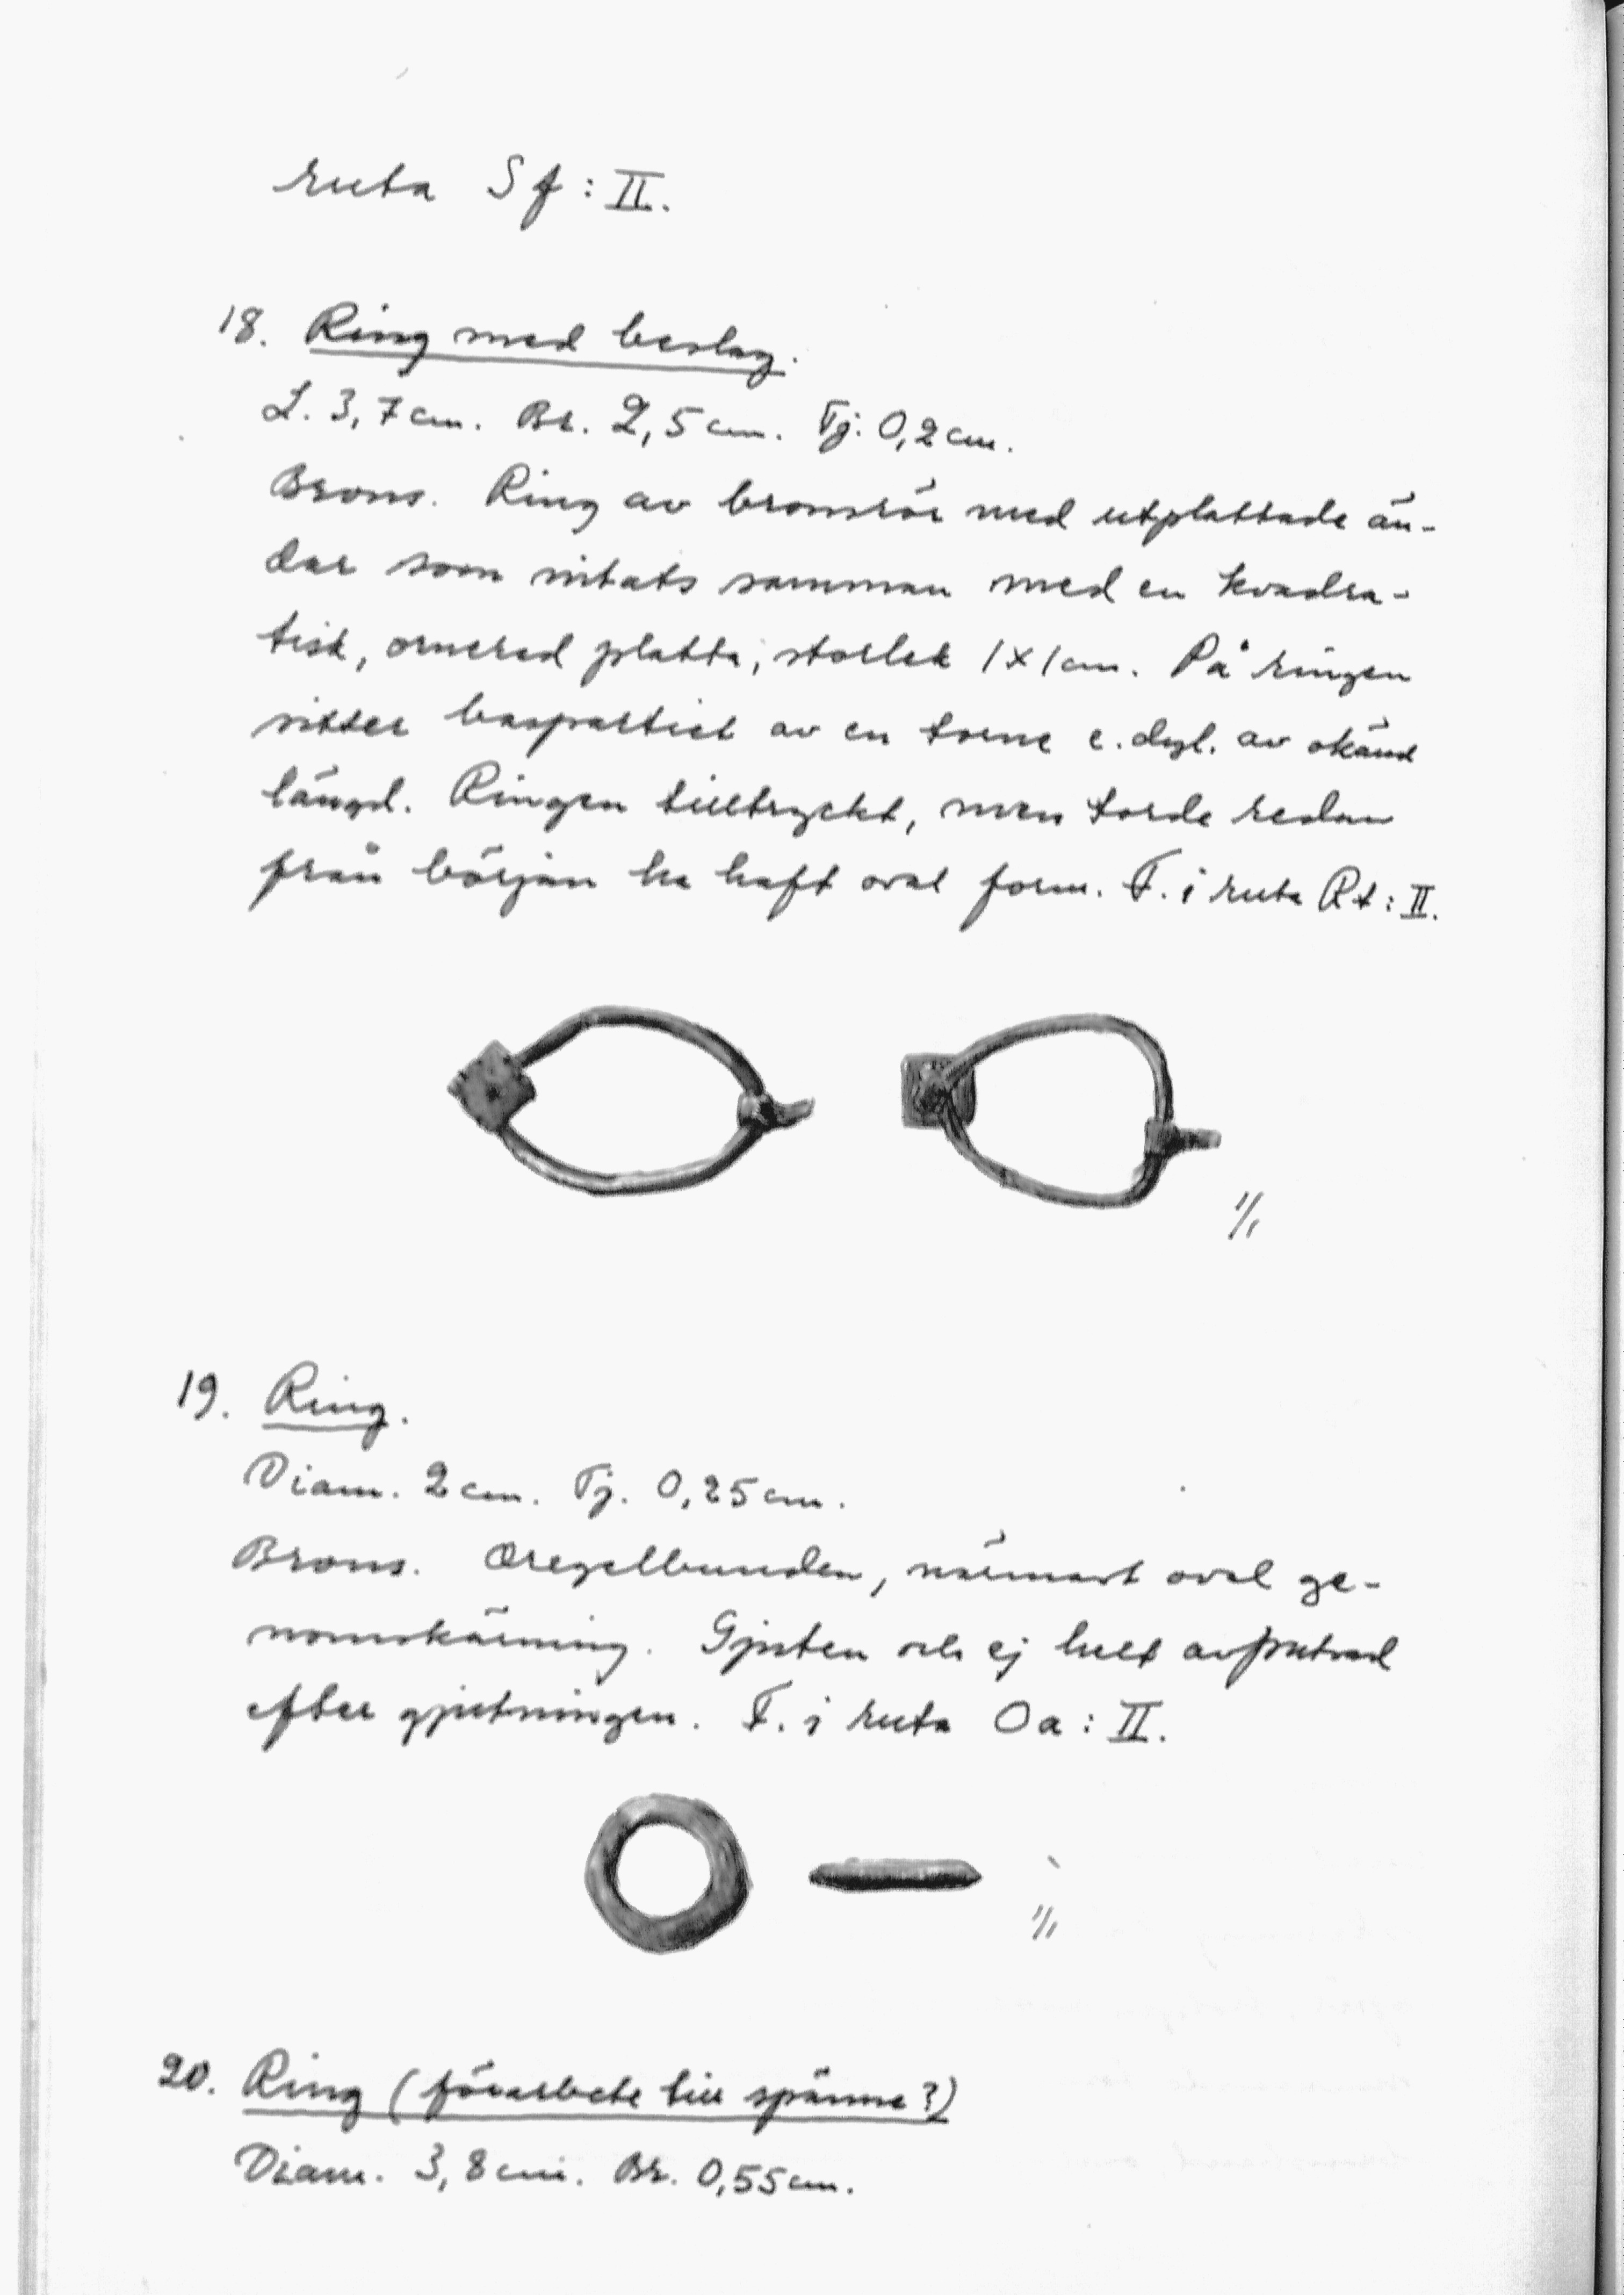 ruta Sf: II.
18. Ring med beslag.
L. 3,7 cm. Br. 2,5 cm. Tj. 0,2 cm.
Brons. Ring av bronsrör med utplattade än-
dar som nitats samman med en kvadra-
tisk, ornerad platta, storlek 1x1 cm. På ringen
sitter baspartiet av en torne e.dyl. av okänd
längd. Ringen tilltryckt, men torde redan
från början ha haft oval form. F. i ruta Rt: II.
1/1
19. Ring.
Diam. 2 cm. Tj. 0,25 cm.
Brons. Oregelbunden, närmast oval ge-
nomskärning. Gjuten och ej helt avputsad
efter gjutningen. F. i ruta Oa: II.
1/1
20. Ring (förarbete till spänne?)
Diam. 3,8 cm. Br. 0,55 cm.